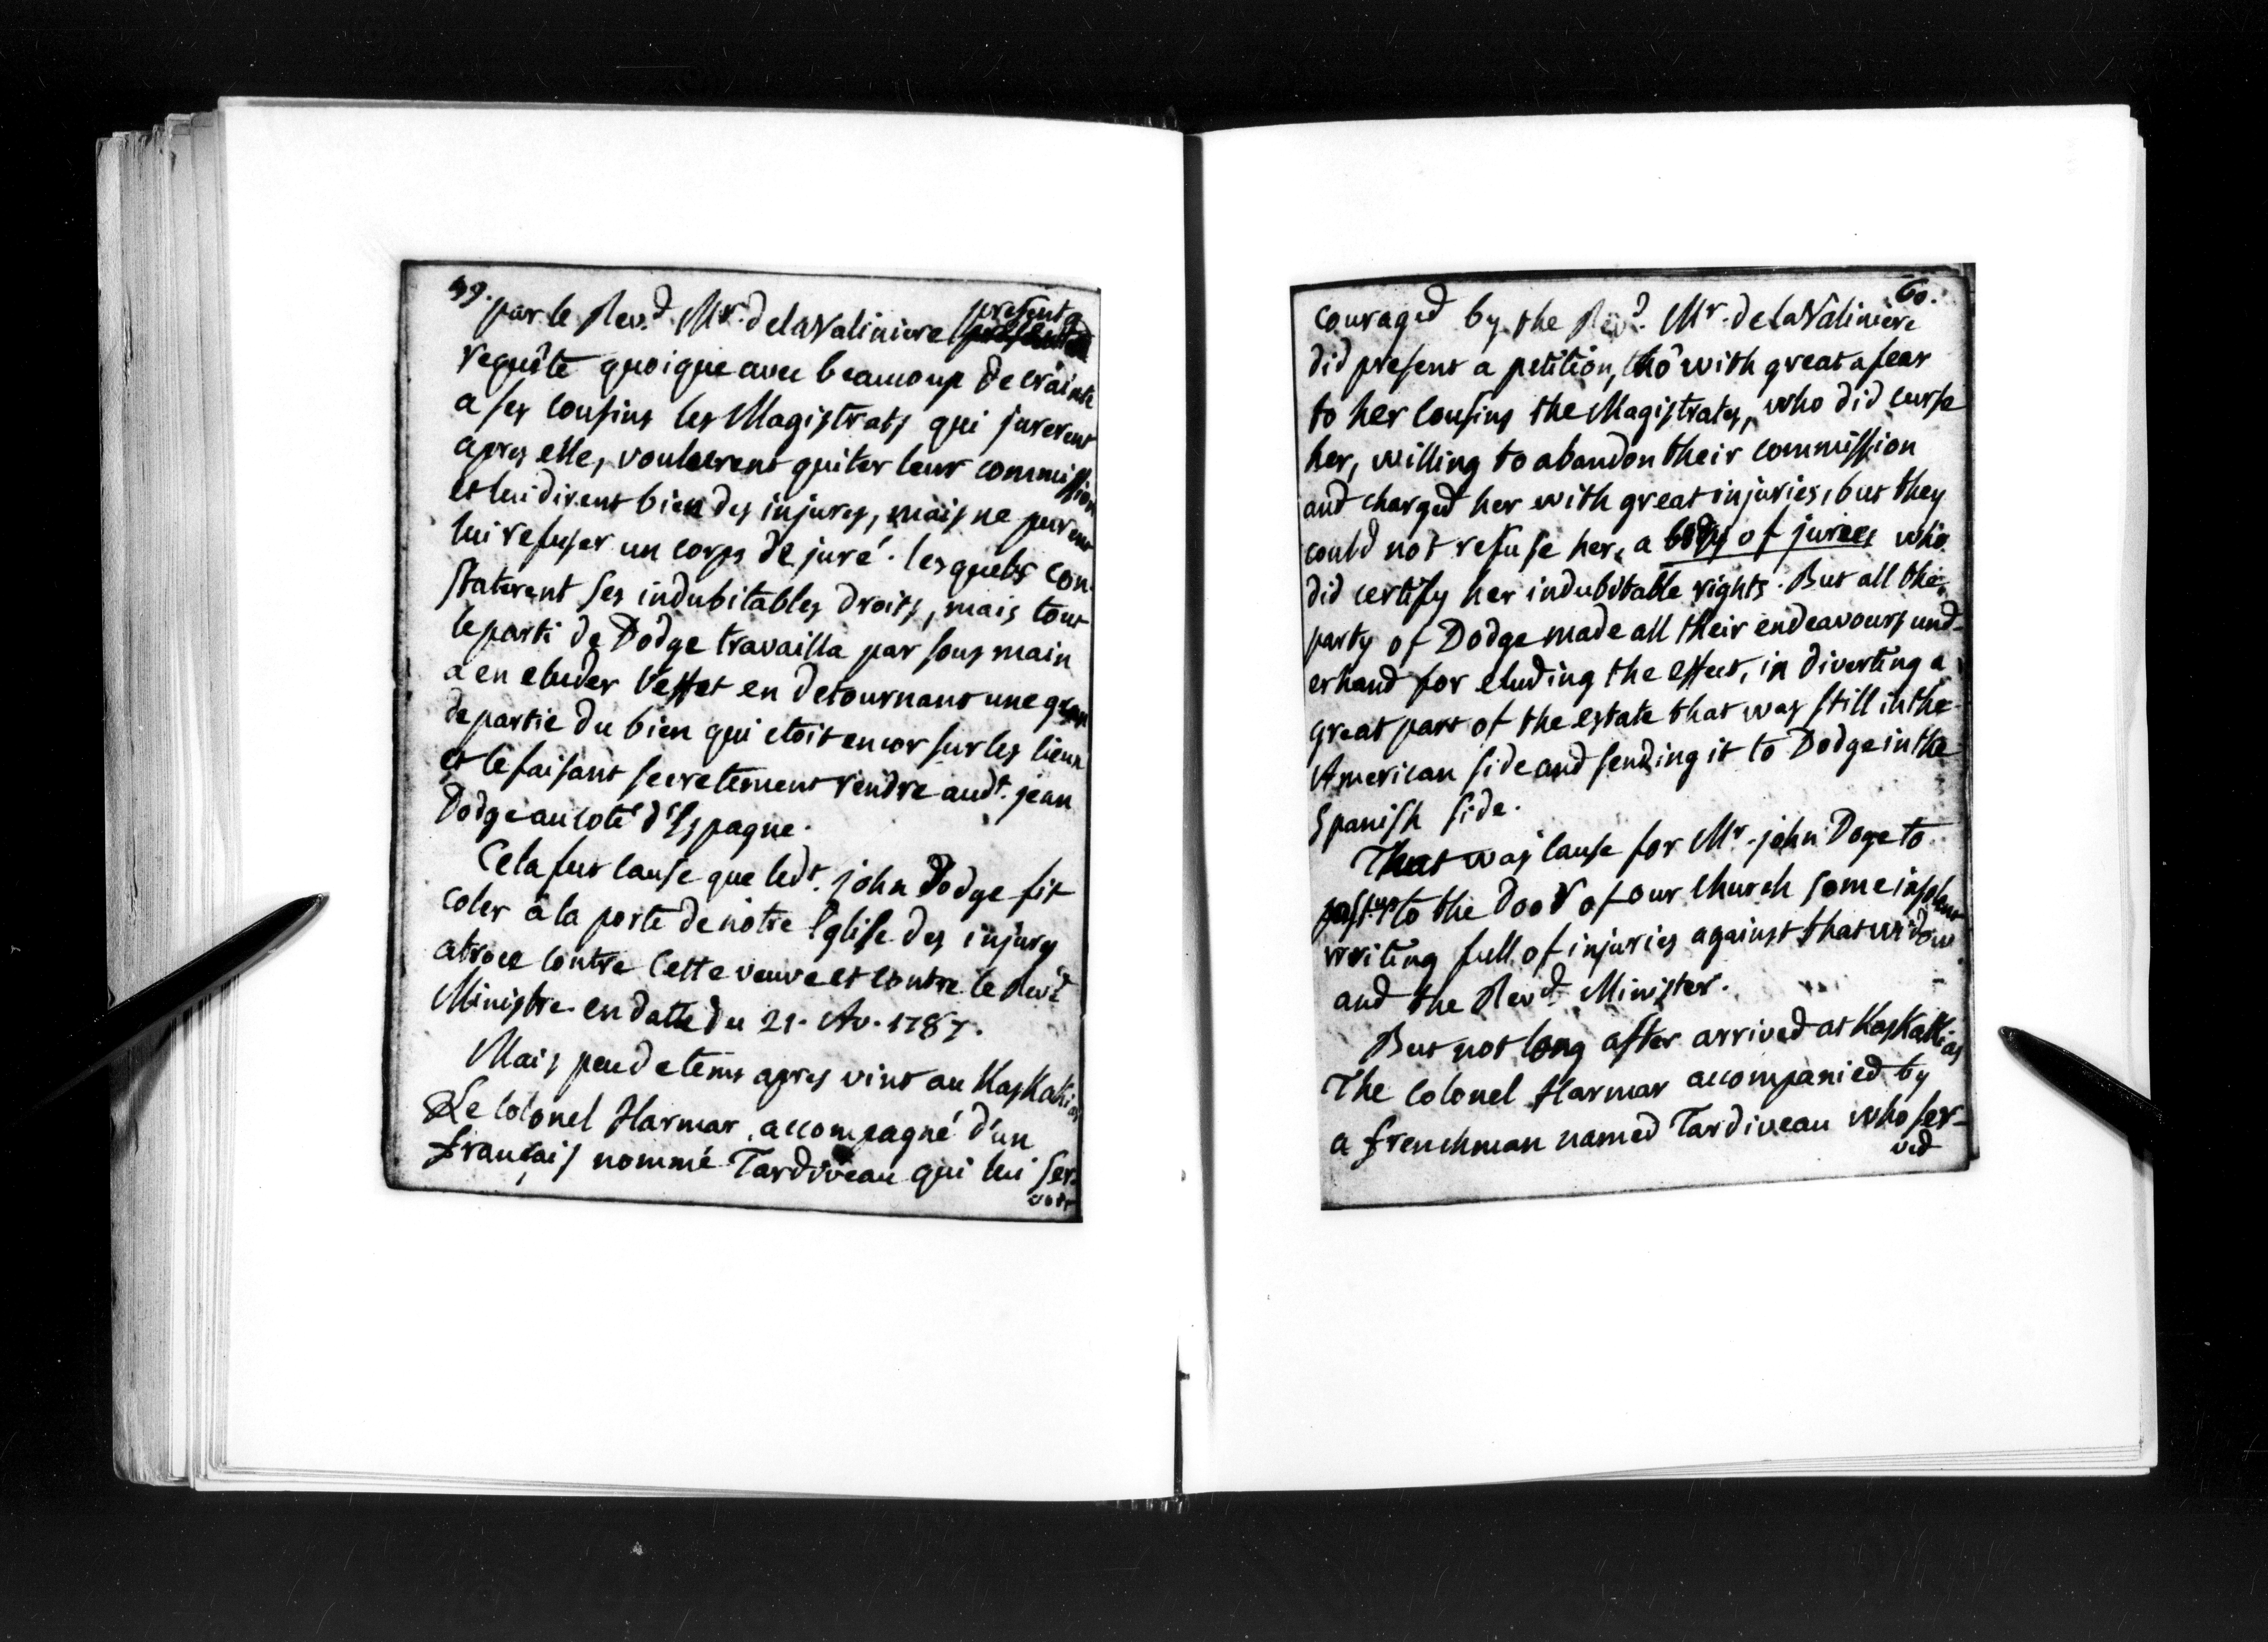 59.
par le Rev.d Mr. de la Valiniere presenta
requête quoique avec beaucoup de crainte
a ses cousins les Magistrats qui jurerent
apres elle, voulurent quiter leur commission
et lui dirent bien des injures, mais ne purent
lui refuser un corps de juré. lesquels con-
staterent ses indubitables droits, mais tout
le parti de Dodge travailla par sous main
a en eluder l'effet en detournant une gran
de partie du bien qui etoit encor sur les lieux
et le faisant secretement rendre audt. jean
Dodge au coté d'Espagne.
Cela fut cause que ledt. john Dodge fit
coler à la porte de nôtre Eglise des injures
atroces contre cette veuve et contre le Revd
Ministre en datte du 21. Av. 1787.
Mais peu de tems apres vint au Kaskakias
Le Colonel Harmar, accompagné d'un
français nommé Tardiveau qui lui ser-
voit
60.
couraged by the Revd. Mr. de la Valiniere
did present a petition, tho' with great a fear
to her Cousins the Magistrates, who did curse
her, willing to abandon their commission
and charged her with great injuries, but they
could not refuse her, a body of jurees who
did certify her indubitable rights. But all the
party of Dodge made all their endeavours und-
erhand for eluding the effect, in diverting a
great part of the estate that was still in the
American side and sending it to Dodge in the
Spanish side.
That was cause for Mr. john Doge to
past up to the door of our Church some insolent
writing full of injuries against that widow
and the Revd. Minister.
But not long after arrived at Kaskaskias
The Colonel Harmar accompanied by
a frenchman named Tardiveau who ser-
ved